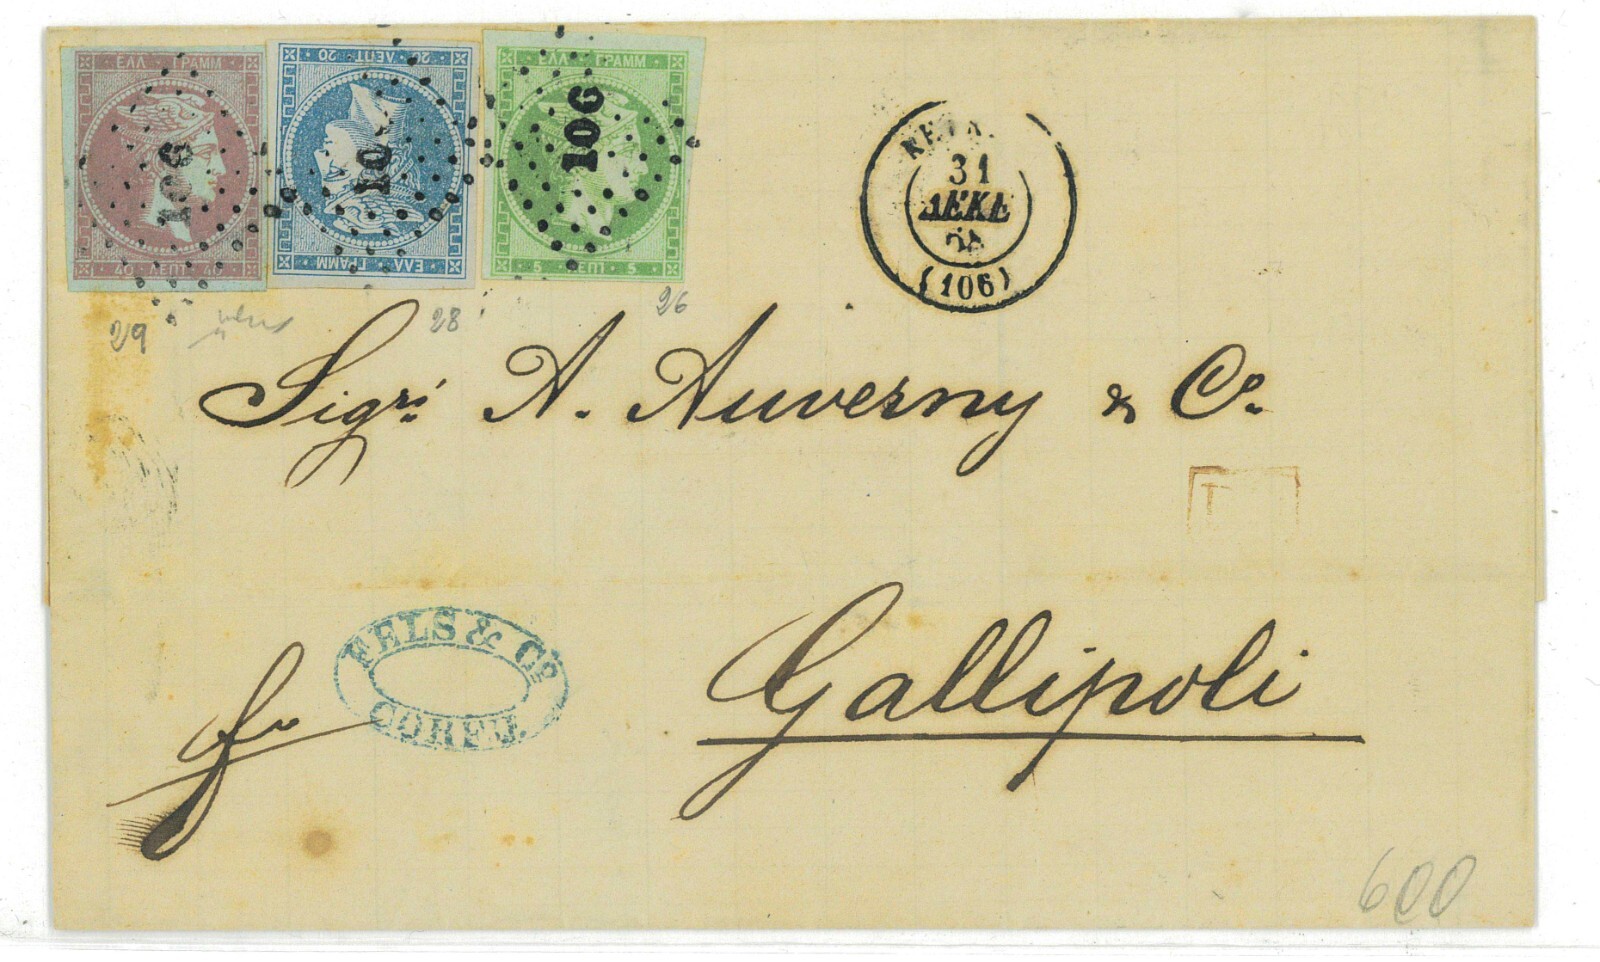 ΕΛΛ ΓΡΑΜΜ
40 ΛΕΠΤ 40
106
20 ΛΕΠΤ 20
ΕΛΛ ΓΡΑΜΜ
10
ΕΛΛ ΓΡΑΜΜ
5 ΛΕΠΤ 5
106
31
ΔΕΚΕ
(106)
29
28
26
Sigri A. Auverny & Co.
T
FELS & Co.
CORFU.
Gallipoli
600